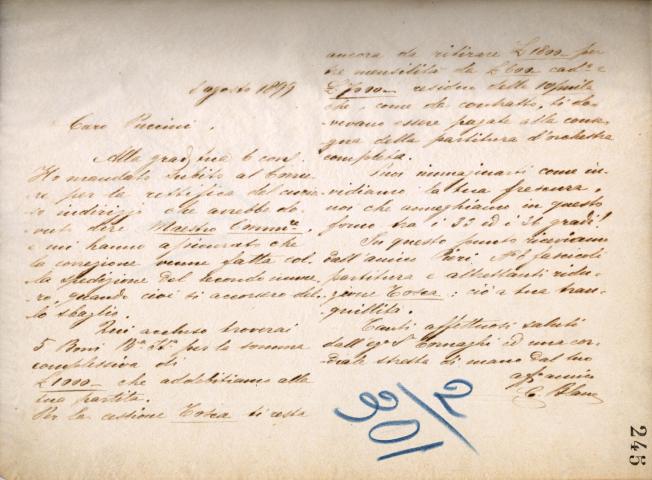 1 agosto 1899
Caro Puccini,
Alla gradma tua 6 corr.
Ho mandato subito al Corrie-
re per la rettifica del curio-
so indirizzo che avrebbe do-
vuto dire Maestro Comm.re
e mi hanno assicurato che
la correzione venne fatta col-
la spedizione del secondo nume-
ro, quando cioè si accorsero del-
lo sbaglio.
Qui accluso troverai
5 Boni Bca Ita per la somma
complessiva di
£ 1000 che addebitiamo alla
tua partita.
Per la cessione Tosca ti resta
ancora da ritirare £ 1800 per
tre mensilità da £ 600 cadna e
£ 7000 residuo delle 10/mila
che, come da contratto, ti do-
vevano essere pagate alla conse-
gna della partitura d'orchestra
completa.
Puoi immaginarti come in-
vidiamo la tua frescura,
noi che anneghiamo in questo
forno tra i 33 ed i 36 gradi!
In questo punto riceviamo
dall'amico fascicoli
partitura e altrettanti ridu-
zione Tosca: ciò a tua tran-
quillità.
Tanti affettuosi saluti
dall' Sr Tornaghi ed una cor-
diale stretta di mano dal tuo
aff amico
C. Blanc
2/301
245